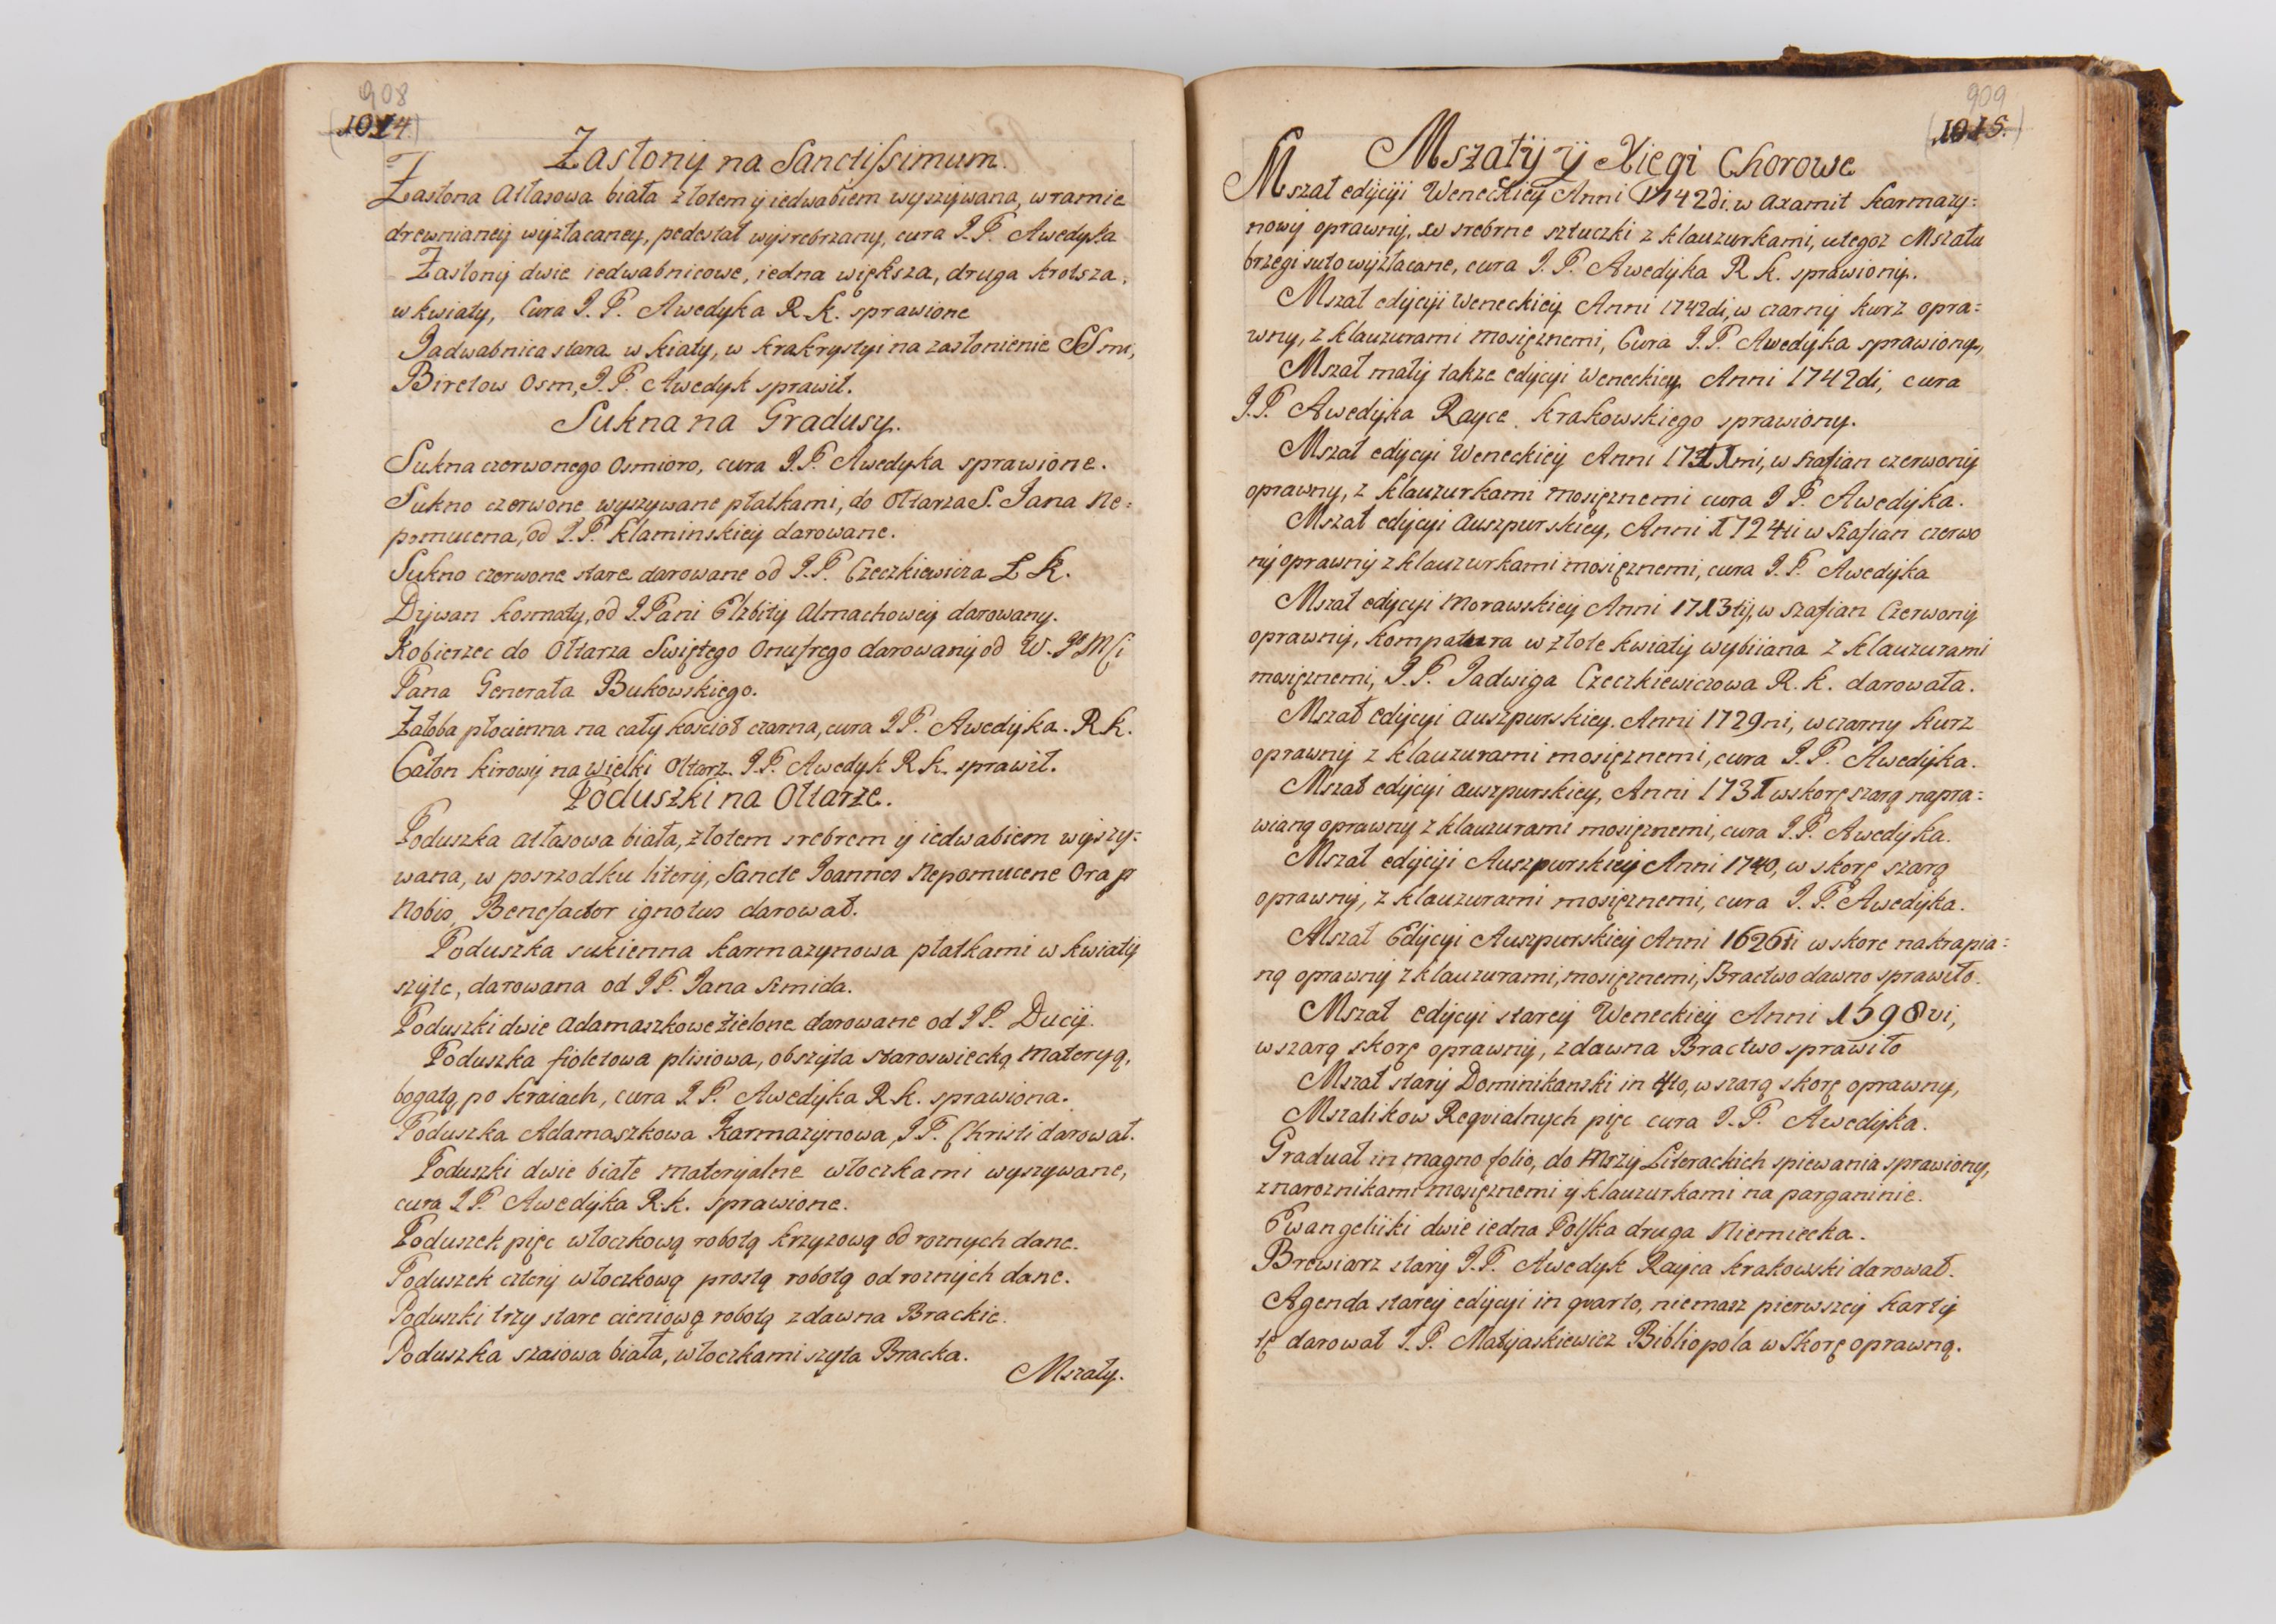 908
(1014.)
Zasłony na Sanctissimum.
Zasłona Atłasowa biała złotem y iedwabiem wyszywana, w ramie
drewnianey wyzłacaney, pedestał wysrebrzany, cura I.P. Awedyka
Zasłony dwie iedwabnicowe, iedna większa, druga krotsza,
w kwiaty, Cura I.P. Awedyka R.K. sprawione
Jadwabnica stara w kiaty, w krakrystyi na zasłonienie SSmi,
Biretow Osm, I.P. Awedyk sprawił.
Sukna na Gradusy.
Sukna czerwonego Osmioro, cura I.P. Awedyka sprawione.
Sukno czerwone wyszywane płatkami, do Ołtarza S. Jana Ne=
pomucena, od I.P. Klaminskiey darowane.
Sukno czerwone stare darowane od I.P. Czeczkiewicza L K.
Dywan kosmaty, od I.Pani Elzbity Almachowey darowany.
Kobierzec do Ołtarza Swiętego Onufrego darowany od W. IMSi
Pana Generała Bukowskiego.
Załoba płocienna na cały koscioł czarna, cura I.P. Awedyka. R.k.
Całon kirowy na wielki Ołtarz I.P. Awedyk R.k. sprawił.
Poduszki na Ołtarze.
Poduszka atłasowa biała, złotem srebrem y iedwabiem wyszy=
wana, w posrzodku litery, Sancte Ioannes Nepomucene Ora p
Nobis, Benefactor ignotus darował.
Poduszka sukienna karmazynowa płatkami w kwiaty
szyte, darowana od I.P. Jana Szmida.
Poduszki dwie adamaszkowe zielone darowane od I.P. Ducij.
Poduszka fioletowa plisiowa, obszyta staroswiecką materyą,
bogatą po kraiach, cura I.P. Awedyka R.k. sprawiona.
Poduszka Adamaszkowa Karmazynowa, I.P. Christi darował.
Poduszki dwie białe materyalne włoczkami wyszywane,
cura I.P. Awedyka R.k. sprawione.
Poduszek pięc włoczkową robotą krzyzową od roznych dane.
Poduszek cztery włoczkową prostą robotą od roznych dane.
Poduszki trzy stare cieniową robotą zdawna Brackie.
Poduszka szaiowa biała, włoczkami szyta Bracka.
Mszały.
909
(1015.)
Mszały y Xięgi Chorowe
Mszał edycyi Weneckiey Anni 1742di. w axamit karmazy=
nowy oprawny, w srebrne sztuczki z klauzurkami, utegoz Mszału
brzegi suto wyzłacane, cura I.P. Awedyka R.k. sprawiony.
Mszał edycyi Weneckiey Anni 1742di, w czarny kurz opra=
wny, z klauzurami mosięznemi, Cura I.P. Awedyka sprawiony,
Mszał mały takze edycyi Weneckiey Anni 1742di, cura
I.P. Awedyka Rayce krakowskiego sprawiony.
Mszał edycyi Weneckiey Anni w szafian czerwony
oprawny, z klauzurkami mosięznemi cura I.P. Awedyka.
Mszał edycyi Auszpurskiey, Anni 1724ti w szafian czerwo
ny oprawny z klauzurkami mosięznemi, cura I.P. Awedyka
Mszał edycyi Morawskiey Anni 1713tij, w szafian Czerwony
oprawny, kompatura w złote kwiaty wybiiana z klauzurami
mosięznemi, I.P. Jadwiga Czeczkiewiczowa R.k. darowała.
Mszał edycyi Auszpurskiey. Anni 1729ni, w czarny kurz
oprawny z klauzurami mosięznemi, cura I.P. Awedyka.
Mszał edycyi auszpurskiey, Anni 1731 w skorę szarą napra=
wianą oprawny z klauzurami mosięznemi, cura I.P. Awedyka.
Mszał edycyi Auszpurskiey Anni 1740, w skorę szarą
oprawny, z klauzurami mosięznemi, cura I.P. Awedyka.
Mszał Edycyi Auszpurskiey Anni 1626ti w skore nakrapia=
ną oprawny z klauzurami, mosięznemi, Bractwo dawno sprawiło.
Mszał edycyi starey Weneckiey Anni 1598vi,
w szarą skorę oprawny, zdawna Bractwo sprawiło
Mszał stary Dominikanski in 4to, w szarą skorę oprawny,
Mszalikow Reqvialnych pięc cura I.P. Awedyka.
Graduał in magno folio, do Mszy Literackich spiewania sprawiony,
z naroznikami mosięznemi y klauzurkami na parganinie.
Ewangeliiki dwie iedna Polska druga Niemiecka.
Brewiarz stary I.P. Awedyk Rayca krakowski darował.
Agenda starey edycyi in qvarto, niemasz pierwszey karty
tę darował I.P. Matyaskiewicz Bibliopola w skorę oprawną.